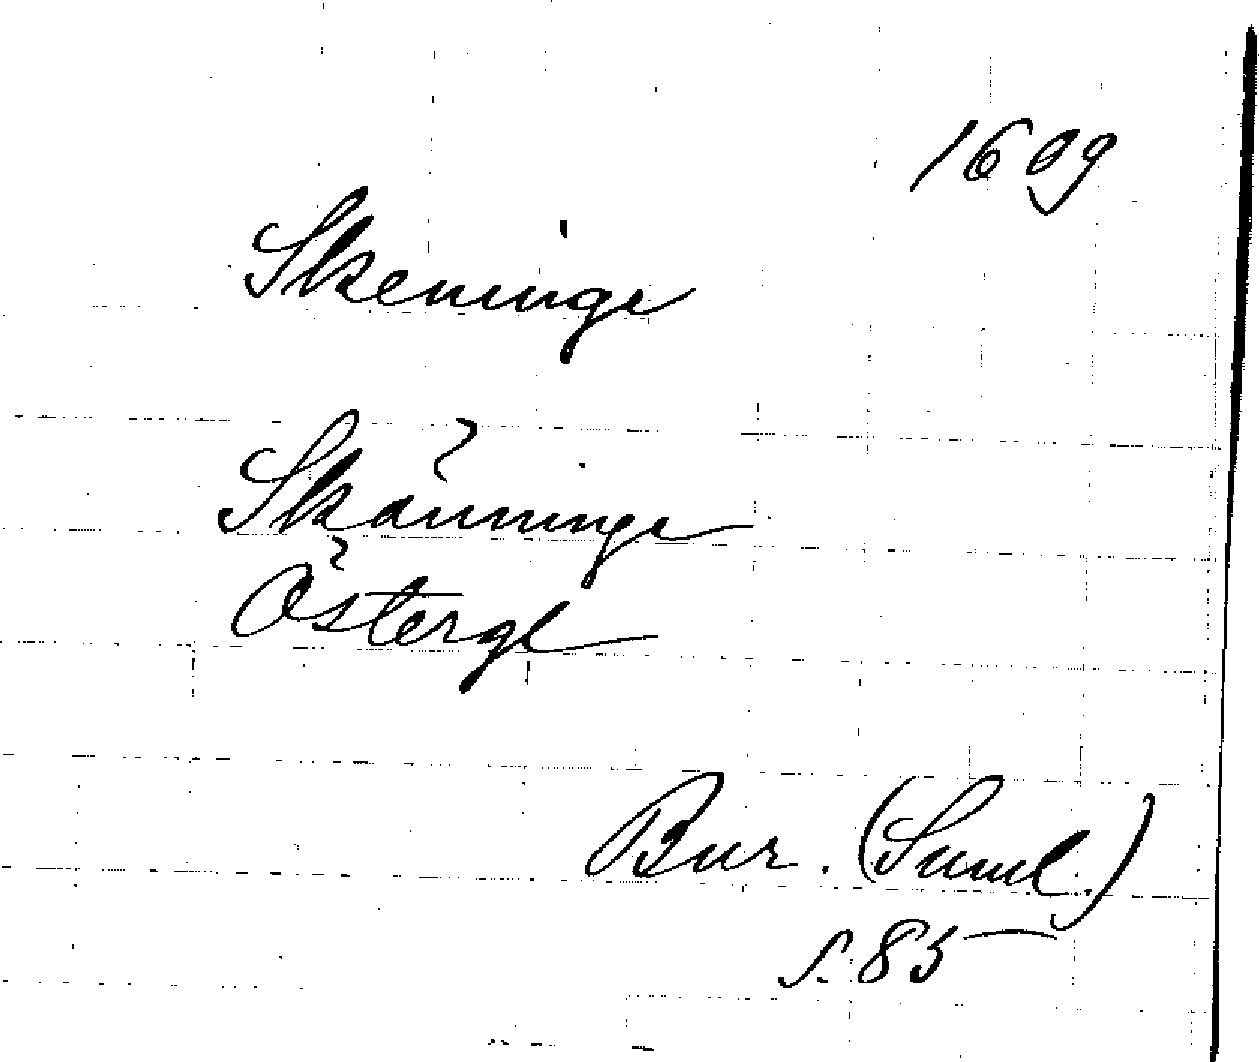 1609
Skeninge
Skänninge
Östergl
Bur. (Suml.)
s. 85